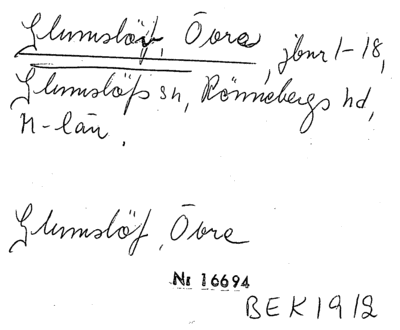 Glumslöf, Övre, jbnr 1-18,
Glumslöfs sn, Rönnebergs hd,
M-län.
Glumslöf, Övre
Nr 16694
BEK 1912